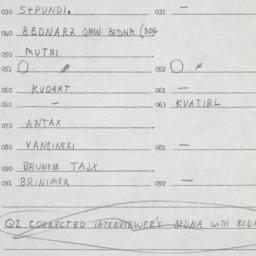 030 STPUNDI. 031 —
040 BEDNARZ QMW BEDNA (306
050 MUTNI
051 052
060 KVOART 061 —
062 — 063 KVATIRL
070 ANTAX
080 VANSINSKI 081 —
090 BRUNEM TAJX
091 BRINIMER 092 —
QI CORRECTED INTERVIEWER'S BEDNA WITH BEDA